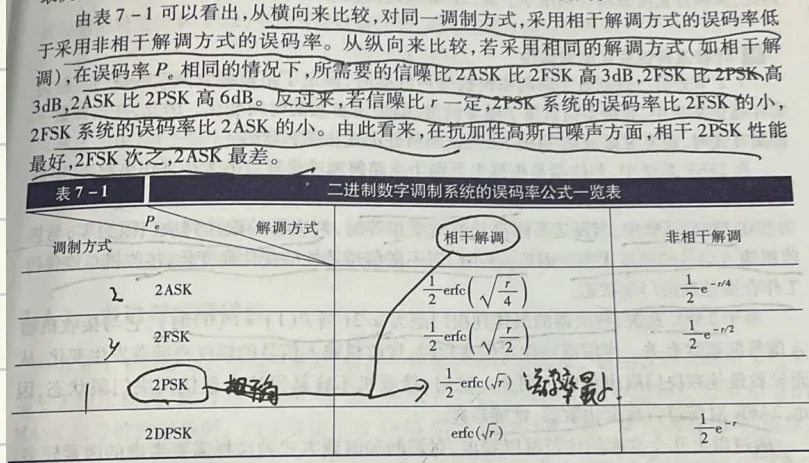 由表7-1可以看出,从横向来比较,对同一调制方式,采用相干解调方式的误码率低
于采用非相干解调方式的误码率。从纵向来比较,若采用相同的解调方式(如相干解
调),在误码率Pₑ相同的情况下,所需要的信噪比2ASK比2FSK高3dB,2FSK比2PSK高
3dB,2ASK比2PSK高6dB。反过来,若信噪比r一定,2PSK系统的误码率比2FSK的小,
2FSK系统的误码率比2ASK的小。由此看来,在抗加性高斯白噪声方面,相干2PSK性能
最好,2FSK次之,2ASK最差。
表7-1 二进制数字调制系统的误码率公式一览表
Pₑ 解调方式
调制方式 相干解调 非相干解调
2ASK 1/2 erfc(√(r/4)) 1/2 e^(-r/4)
2FSK 1/2 erfc(√(r/2)) 1/2 e^(-r/2)
2PSK 1/2 erfc(√r) 误码率最小
2DPSK erfc(√r) 1/2 e^(-r)